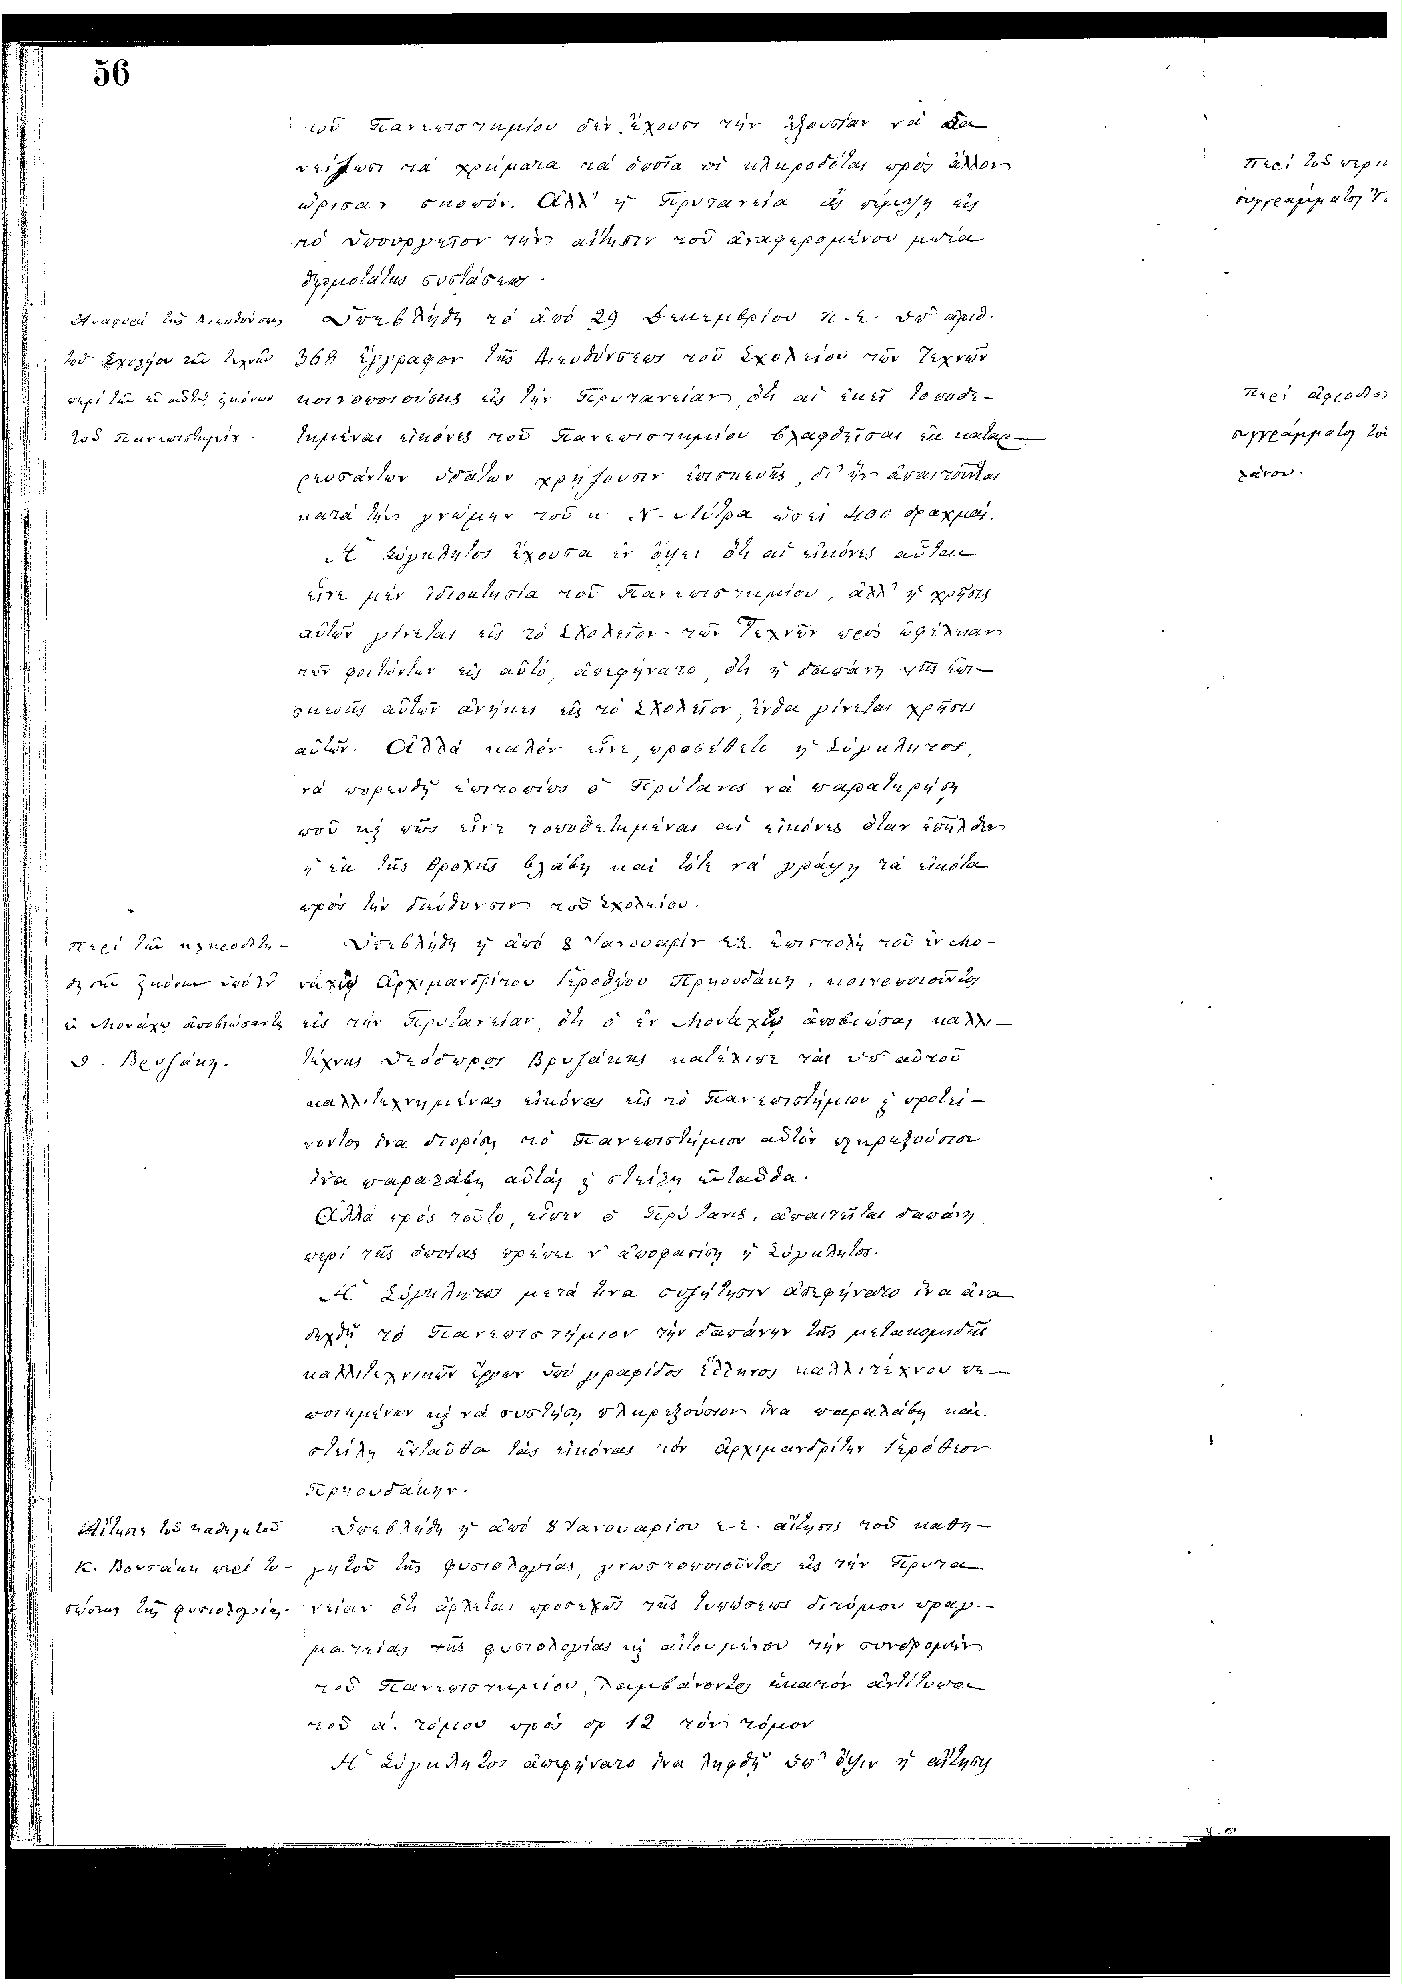 56
τοῦ Πανεπιστημίου δὲν ἔχουσι τὴν ἐξουσίαν νὰ δα
νείσωσι τὰ χρήματα τὰ ὁποῖα οἱ κληροδόται πρὸς ἄλλον
ὥρισαν σκοπόν. Ἀλλ' ἡ Πρυτανεία ἂς πέμψῃ εἰς
τὸ Ὑπουργεῖον τὴν αἴτησιν τοῦ ἀναφερομένου μετὰ
θερμοτάτης συστάσεως.
Ἀναφορὰ τῆς Διευθύνσεως
τοῦ Σχολείου τῶν Τεχνῶν
περὶ τῶν ἐν αὐτῷ εἰκόνων
τοῦ Πανεπιστημίου.
Ὑπεβλήθη τὸ ἀπὸ 29 Δεκεμβρίου π.ἔ. ὑπ' ἀριθ.
368 ἔγγραφον τῆς Διευθύνσεως τοῦ Σχολείου τῶν Τεχνῶν
κοινοποιούσης εἰς τὴν Πρυτανείαν, ὅτι αἱ ἐκεῖ τοποθε-
τημέναι εἰκόνες τοῦ Πανεπιστημίου βλαφθεῖσαι ἐκ καταρ-
ρευσάντων ὑδάτων χρῄζουσιν ἐπισκευῆς, δι' ἣν ἀπαιτοῦνται
κατὰ τὴν γνώμην τοῦ κ. Ν. Λύτρα ὡσεὶ 400 δραχμαί.
Ἡ Σύγκλητος ἔχουσα ἐν ὄψει ὅτι αἱ εἰκόνες αὗται
εἶνε μὲν ἰδιοκτησία τοῦ Πανεπιστημίου, ἀλλ' ἡ χρῆσις
αὐτῶν γίνεται εἰς τὸ Σχολεῖον τῶν Τεχνῶν πρὸς ὠφέλειαν
τῶν φοιτώντων εἰς αὐτό, ἀπεφήνατο, ὅτι ἡ δαπάνη τῆς ἐπι-
σκευῆς αὐτῶν ἀνήκει εἰς τὸ Σχολεῖον, ἔνθα γίνεται χρῆσις
αὐτῶν. Ἀλλὰ καλὸν εἶνε, προσέθετο ἡ Σύγκλητος,
νὰ πορευθῇ ἐπιτοπίως ὁ Πρύτανις νὰ παρατηρήσῃ
ποῦ κ πῶς εἶνε τοποθετημέναι αἱ εἰκόνες ὅταν ἐπῆλθεν
ἡ ἐκ τῆς βροχῆς βλάβη καὶ τότε νὰ γράψῃ τὰ εἰκότα
πρὸς τὴν διεύθυνσιν τοῦ Σχολείου.
Περὶ τῶν κληροδοτη-
θεισῶν εἰκόνων ὑπὸ τοῦ
ἐν Μονάχῳ ἀποβιώσαντος
Θ. Βρυζάκη.
Ὑπεβλήθη ἡ ἀπὸ 8 Ἰανουαρίου ἐ.ἔ. ἐπιστολὴ τοῦ ἐν Μο-
νάχῳ Ἀρχιμανδρίτου Ἱεροθέου Πρηουδάκη, κοινοποιοῦντος
εἰς τὴν Πρυτανείαν, ὅτι ὁ ἐν Μονάχῳ ἀποβιώσας καλλι-
τέχνης Θεόδωρος Βρυζάκης κατέλιπε τὰς ὑπ' αὐτοῦ
καλλιτεχνημένας εἰκόνας εἰς τὸ Πανεπιστήμιον κ προτεί-
νοντος ἵνα διορίσῃ τὸ Πανεπιστήμιον αὐτὸν πληρεξούσιον
ἵνα παραλάβῃ αὐτὰς κ στείλῃ ἐνταῦθα.
Ἀλλὰ πρὸς τοῦτο, εἶπεν ὁ Πρύτανις, ἀπαιτεῖται δαπάνη
περὶ τῆς ὁποίας πρέπει ν' ἀποφασίσῃ ἡ Σύγκλητος.
Ἡ Σύγκλητος μετά τινα συζήτησιν ἀπεφήνατο ἵνα ἀνα
δεχθῇ τὸ Πανεπιστήμιον τὴν δαπάνην τῆς μετακομιδῆς
καλλιτεχνικῶν ἔργων ὑπὸ γραφίδος Ἕλληνος καλλιτέχνου πε-
ποιημένων κ νὰ συστήσῃ πληρεξούσιον ἵνα παραλάβῃ καὶ
στείλῃ ἐνταῦθα τὰς εἰκόνας τὸν ἀρχιμανδρίτην Ἱερόθεον
Πρηουδάκην.
Αἴτησις τοῦ καθηγητοῦ
Κ. Βουσάκη περὶ τυ-
πώσεως τῆς φυσιολογίας.
Ὑπεβλήθη ἡ ἀπὸ 8 Ἰανουαρίου ἐ.ἔ. αἴτησις τοῦ καθη-
γητοῦ τῆς φυσιολογίας, γνωστοποιοῦντος εἰς τὴν Πρυτα
νείαν ὅτι ἄρχεται προσεχῶς τῆς τυπώσεως διτόμου πραγ-
ματείας τῆς φυσιολογίας κ αἰτουμένου τὴν συνδρομὴν
τοῦ Πανεπιστημίου, λαμβάνοντος ἑκατὸν ἀντίτυπα
τοῦ α'. τόμου πρὸς δρ 12 τὸν τόμον
Ἡ Σύγκλητος ἀπεφήνατο ἵνα ληφθῇ ὑπ' ὄψιν ἡ αἴτησις
Περὶ τοῦ
συγγράμματος
Περὶ
συγγράμματος τοῦ